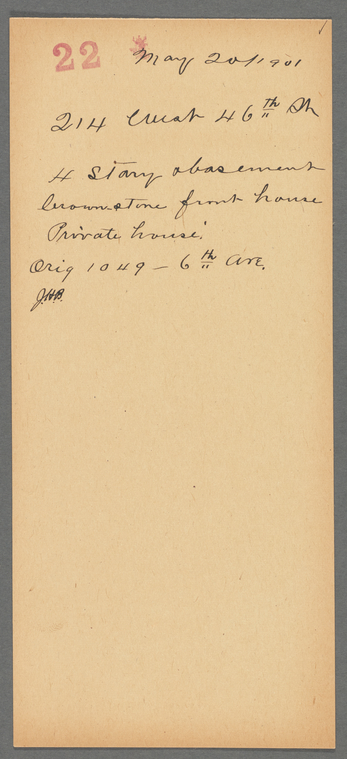 22 * May 20/1901
214 West 46th St
4 Story & basement
brownstone front house
Private house.
Orig 1049 - 6th Ave.
J.H.B.